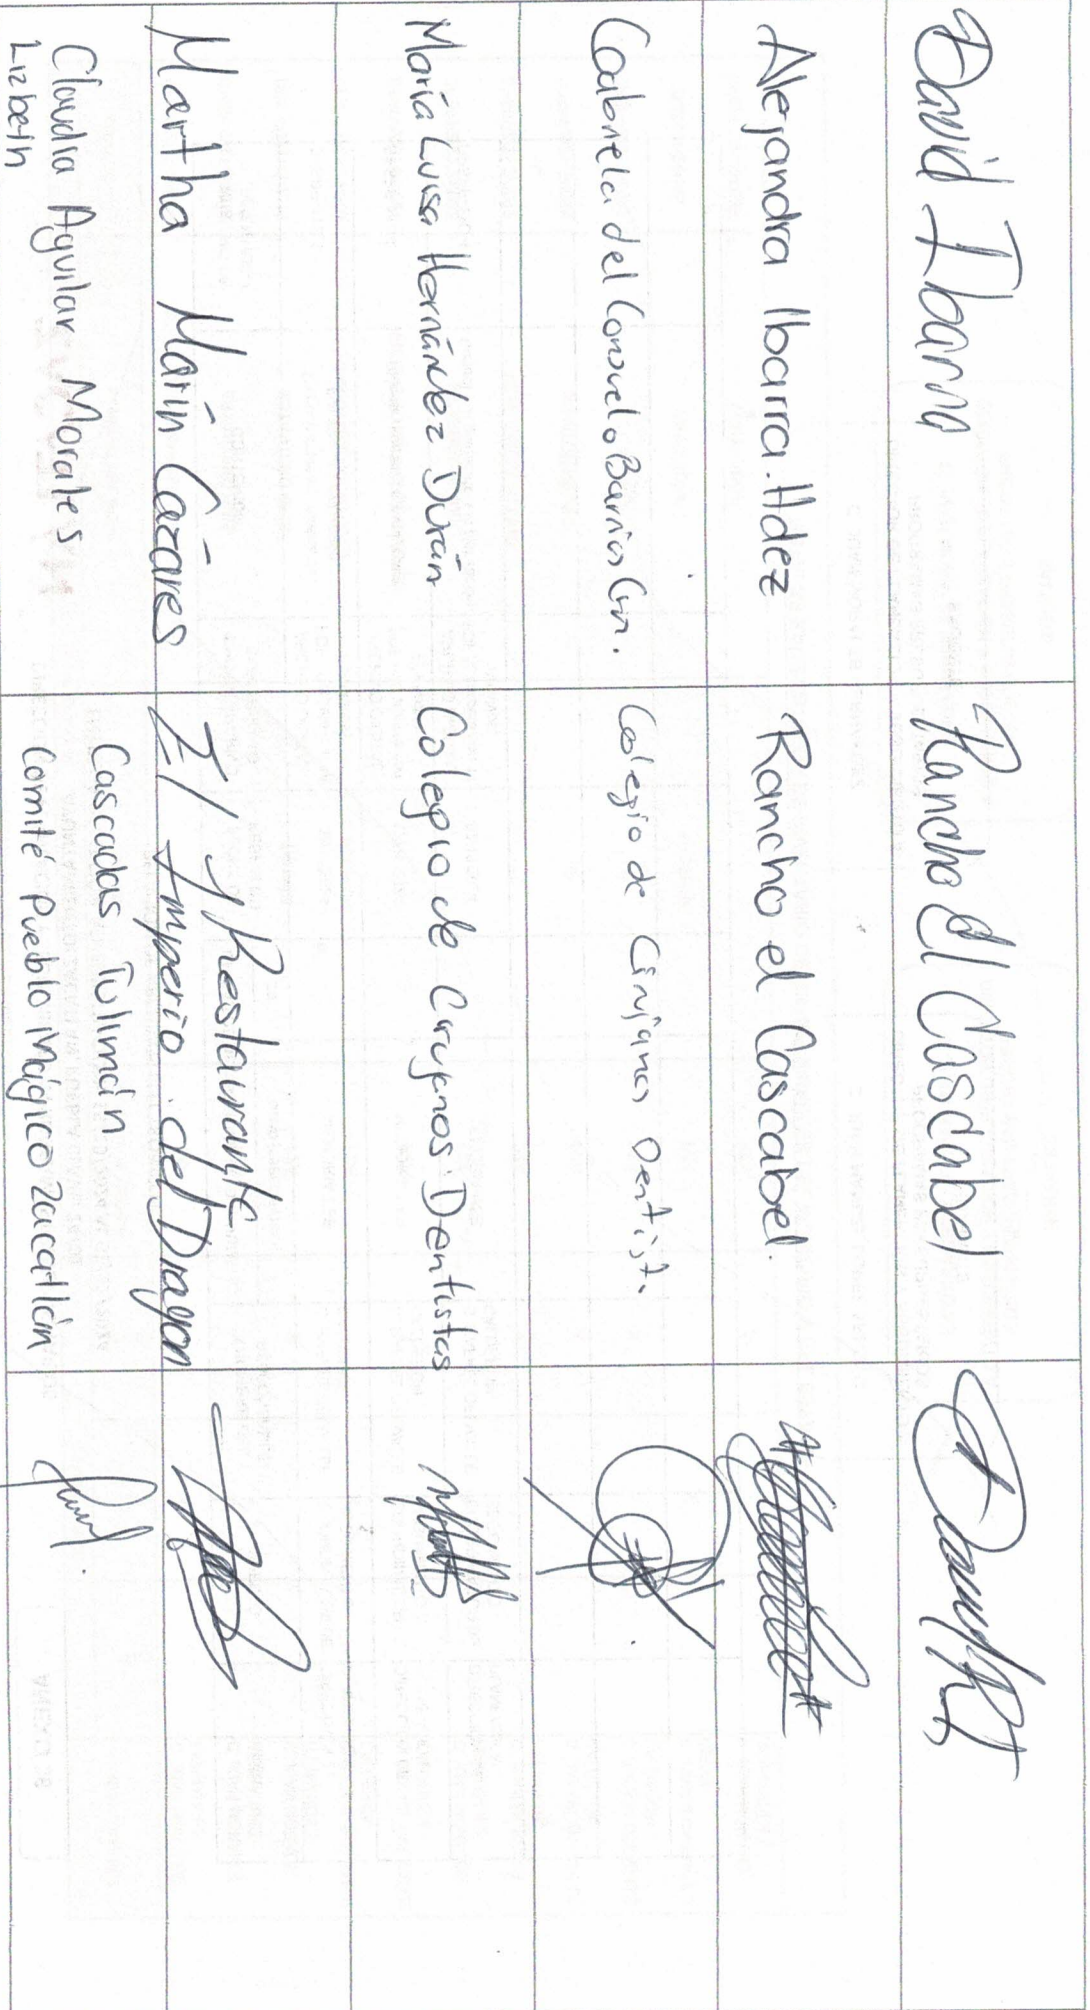 David Ibarra
Rancho El Cascabel
Alejandra Ibarra.Hdez
Rancho el Cascabel.
Gabriela del Consuelo Barrios
Colegio de Cirujanos Dentist.
María Luisa Hernández Durán
Colegio de Cirujanos Dentistas
Martha Marín Cázares
Restaurante
El Imperio del Dragon
Claudia Aguilar Morales
Lizbeth
Cascadas Tulimán
Comité Pueblo Mágico Zacatlán